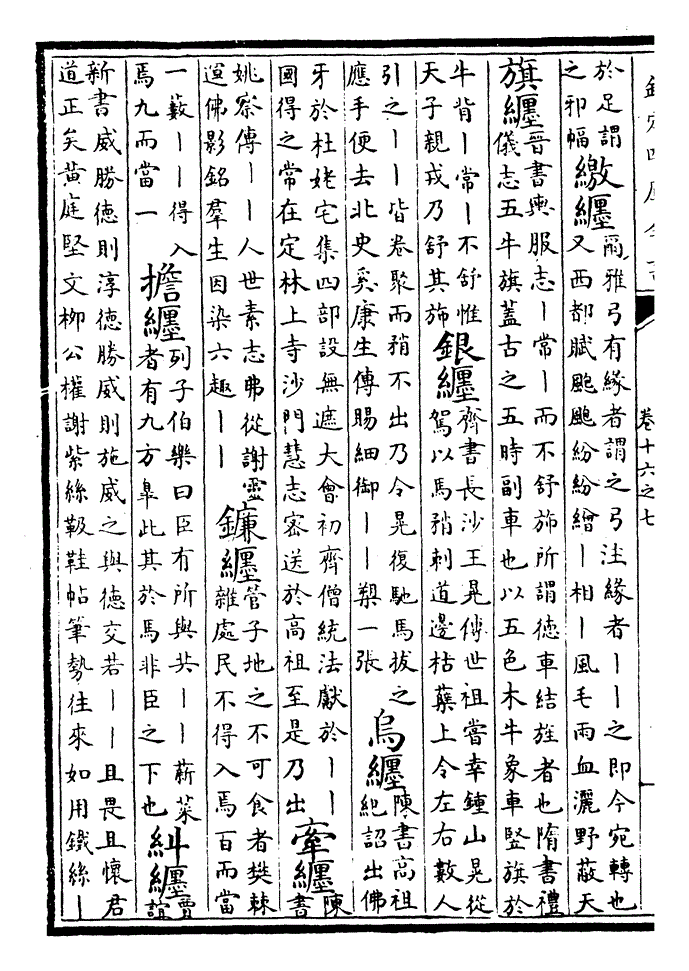 欽定四庫全書 卷十六之七
於足謂
之邪幅
繳纒
爾雅弓有緣者謂之弓注緣者丨丨之即今宛轉也
又西都賦颮颮紛紛繒丨相丨風毛雨血灑野蔽天
旗纒
晉書輿服志丨常丨而不舒旆所謂德車結旌者也隋書禮
儀志五牛旗蓋古之五時副車也以五色木牛象車豎旗於
牛背丨常丨不舒惟
天子親戎乃舒其旆
銀纒
齊書長沙王晃傳世祖嘗幸鍾山晃從
駕以馬矟刺道邊枯蘗上令左右數人
引之丨丨皆卷聚而矟不出乃令晃復馳馬拔之
應手便去北史奚康生傳賜細御丨丨槊一張
烏纒
陳書高祖
紀詔出佛
牙於杜姥宅集四部設無遮大會初齊僧統法獻於丨丨
國得之常在定林上寺沙門慧志密送於高祖至是乃出
牽纒
陳
書
姚察傳丨丨人世素志弗從謝靈
運佛影銘羣生因染六趣丨丨
鐮纒
管子地之不可食者樊棘
雜處民不得入焉百而當
一藪丨丨得入
焉九而當一
擔纒
列子伯樂曰臣有所與共丨丨薪菜
者有九方臯此其於馬非臣之下也
糾纒
賈
誼
新書威勝德則淳德勝威則施威之與德交若丨丨且畏且懷君
道正矣黃庭堅文柳公權謝紫絲靸鞋帖筆勢往來如用鐵絲丨